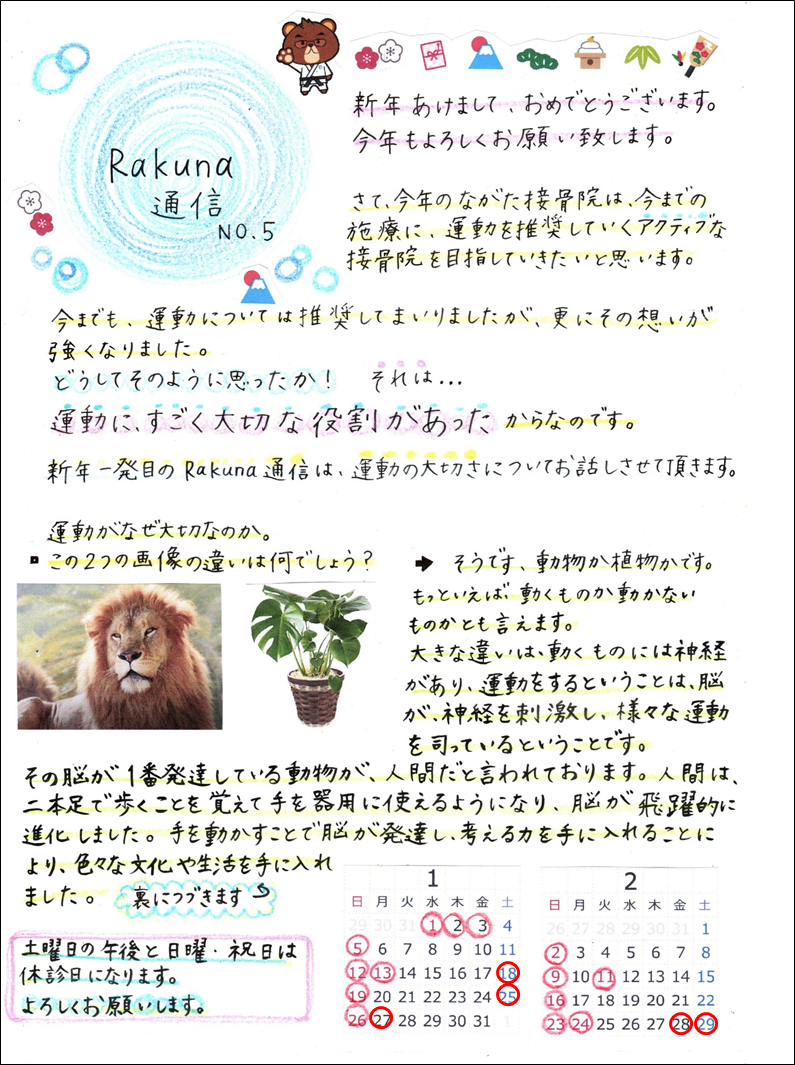 Rakuna
通信
NO.5
新年あけまして、おめでとうございます。
今年もよろしくお願い致します。
さて、今年のながた接骨院は、今までの
施療に、運動を推奨していくアクティブな
接骨院を目指していきたいと思います。
今までも、運動については推奨してまいりましたが、更にその想いが
強くなりました。
どうしてそのように思ったか！ それは…
運動に、すごく大切な役割があったからなのです。
新年一発目のRakuna通信は、運動の大切さについてお話しさせて頂きます。
運動がなぜ大切なのか。
この2つの画像の違いは何でしょう？
➡ そうです、動物か植物かです。
もっといえば動くものか動かない
ものかとも言えます。
大きな違いは、動くものには神経
があり、運動をするということは、脳
が、神経を刺激し、様々な運動
を司っているということです。
その脳が1番発達している動物が、人間だと言われております。人間は、
二本足で歩くことを覚えて手を器用に使えるようになり、脳が飛躍的に
進化しました。手を動かすことで脳が発達し、考える力を手に入れることに
より、色々な文化や生活を手に入れ
ました。 裏につづきます
土曜日の午後と日曜・祝日は
休診日になります。
よろしくお願いします。
1
日 月 火 水 木 金 土
29 30 31 1 2 3 4
5 6 7 8 9 10 11
12 13 14 15 16 17 18
19 20 21 22 23 24 25
26 27 28 29 30 31 1
2
日 月 火 水 木 金 土
26 27 28 29 30 31 1
2 3 4 5 6 7 8
9 10 11 12 13 14 15
16 17 18 19 20 21 22
23 24 25 26 27 28 29